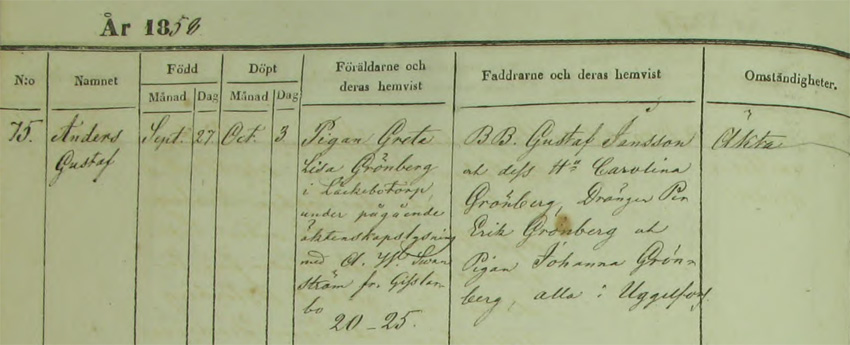 År 1858
N:o Namnet Född Döpt Föräldarne och deras hemvist Faddrarne och deras hemvist Omständigheter.
Månad Dag Månad Dag
75. Anders Sept. 27. Oct. 3 Pigan Greta B B. Gustaf Jansson Äkta
Gustaf Lisa Grönberg och dess Hu Carolina
i Läckebotorp Grönberg, Drängen Per
under pågående Erik Grönberg och
äktenskapslysning Pigan Johanna Grön-
med A. W. Swan berg, alla i Uggelfors
ström fr. Gisslar-
bo
20-25.